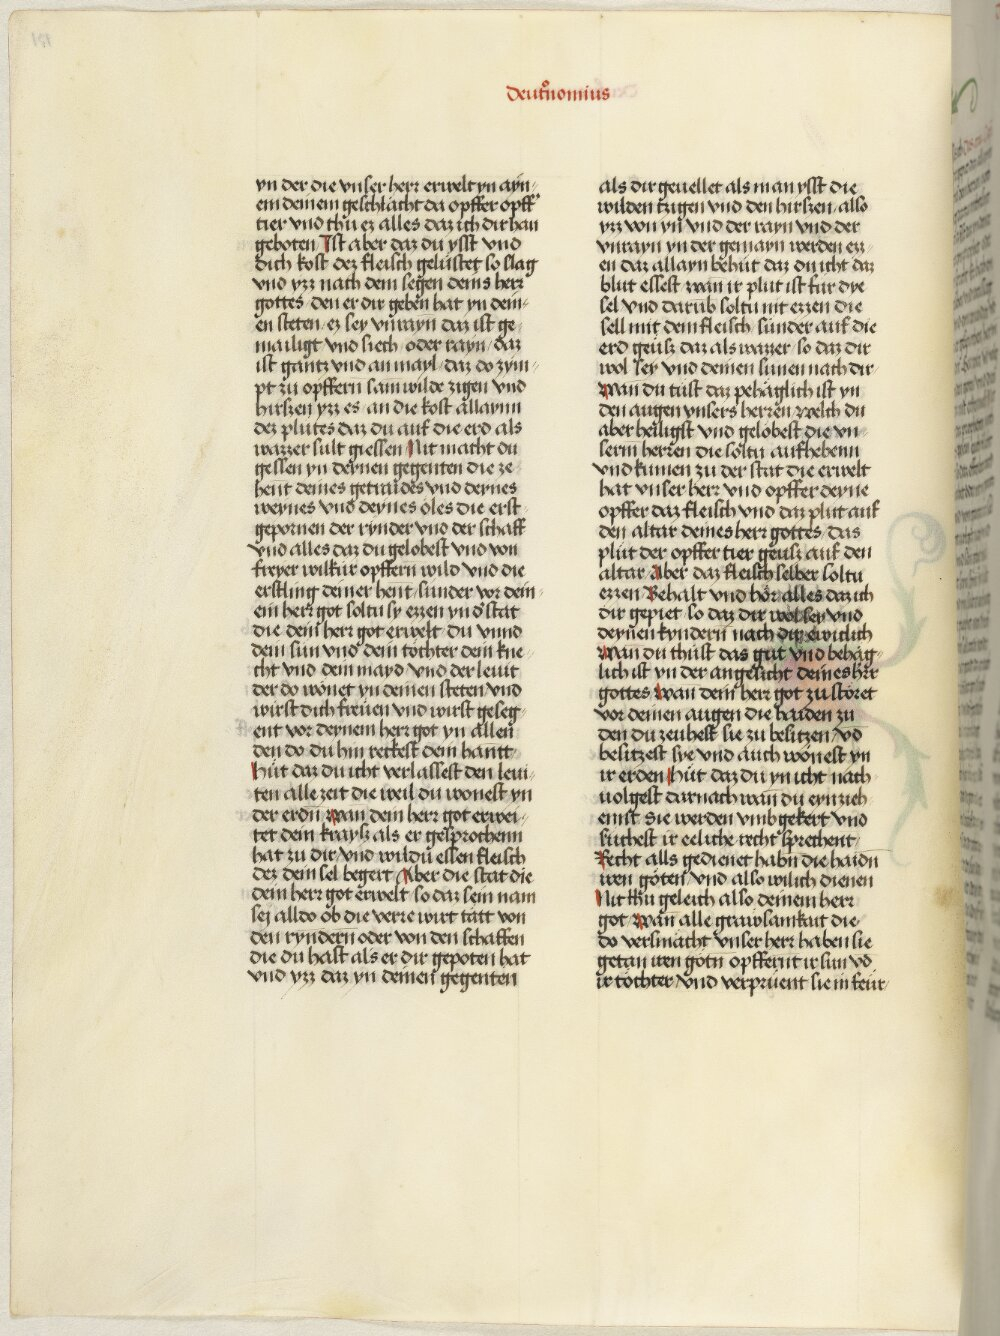 deut͛nomius
yn der die vnser herr erwelt yn ayn-
em deinem geschlächt da opffer opff͛
tier vnd thu ez alles daz ich dir han
geboten Ist aber daz du ysst vnd
dich kost dez fleisch gelustet so slag
vnd yzz nach dem segen deins herr
gottes den er dir geben hat yn dein-
en steten ez sey vnrayn daz ist ge-
mailigt vnd siech oder rayn daz
ist gantz vnd an mayl daz do zym-
pt zu opffern sam wilde zigen vnd
hirszen yzz es an die kost allaynn
dez plutes daz du auf die erd als
wazzer sult giessen Nit macht du
gessen yn deynen gegenten die ze-
hent deines getraides vnd deynes
weynes vnd deynes oles die erst-
gepornen der rynder vnd der schaff
vnd alles daz du gelobest vnd von
freyer wilkur opffern wild vnd die
erstling deiner hent sunder vor dein-
em herr got soltu sy ezzen yn d͛ stat
die dein herr got erwelt du vnnd
dein sun vnd dein tochter dein kne-
cht vnd dein mayd vnd der leuit
der do wonet yn deinen steten vnd
wirst dich freuen vnd wirst geseg-
ent vor deynem herr got yn allen
den do du hin reckest dein hantt
Hüt daz du icht verlassest den leui-
ten alle zeit die weil du wonest yn
der erdn̄ wan dein herr got erwei-
tet dein krays als er gesprochenn
hat zu dir vnd wildu essen fleisch
dez dein sel begert Aber die stat die
dein herr got erwelt so daz sein nam
sei alldo ob die verre wirt tätt von
den ryndern oder von den schaffen
die du hast als er dir gepoten hat
vnd yzz daz yn deinen gegenten
als dir geuellet als man ysst die
wilden tzigen vnd den hirszen also
yzz von yn vnd der rayn vnd der
vnrayn yn der gemayn werden ez-
en daz allayn behüt daz du icht daz
blut essest wan ir plut ist fur dye
sel vnd darüb soltu nit ezzen die
sell mit dem fleisch sunder auf die
erd geusz daz als wazzer so daz dir
wol sey vnd deinen sunen nach dir
Wan du tust daz pehäglich ist yn
den augen vnsers herren welch du
aber heiligst vnd gelobest die vn-
serm herren die soltu aufhebenn
vnd kumen zu der stat die erwelt
hat vnser herr vnd opffer deyne
opffer daz fleisch vnd daz plut auf
den altar deines herr gottes das
plut der opffer tier geusz auf den
altar Aber daz fleisch selber soltu
ezzen Behalt vnd hör alles daz ich
dir gepiet so daz dir wol sey vnd
deynen kyndern nach dir ewiclich
Wan du thüst das gut vnd behäg-
lich ist yn der angesicht deines h͛r
gottes wan dein herr got zu störet
vor deinen augen die haiden zu
den du zeuhest sie zu besitzen vn̄d
besitzest sye vnd auch wönest yn
ir erden Hüt daz du yn icht nach
uolgest darnach wan̄ du eynzieh-
ennst Sie werden vmb gekert vnd
suchest ir eeliche recht sprechent
Recht alls gedienet habn̄ die haidn̄
iren göten vnd also wil ich dienen
Nit thu geleich also deinem herr
got Wan alle grawsamkait die
do versmächt vnser herr haben sie
getan iren götn̄ opffernt ir sun vn̄d
ir töchter vnd verprüent sie im feür